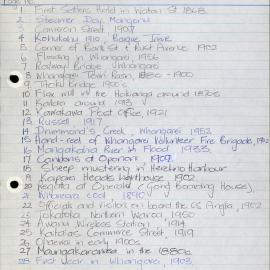 1 First Settlers Held in Water St 1868
2 Steamer Day, Mangonui
3 Cameron Street, 1907
4 Kohukohu 1910, Barque Irvine
5 Corner of Bank St & Rust Avenue 1902
6 Flooding in Whangarei, 1956
7 Railway Bridge Whangarei
8 Whangarei Town Basin, 1880 - 1900
9 Bridge 1900s
10 Flax mill in the Hokianga around 1870s
11 Kaitaia around 1913
12 Kawakawa Post Office, 1921
13 Russell 1917
14 Drummond's Creek, Whangarei 1962
15 Hand-reel of Whangarei Volunteer Fire Brigade, 1902
16 Mangakahia River in Flood 1933
17 Gardens at Opononi, 1907
18 Sheep mustering in Herekino Harbour
19 Kaipara Heads Lighthouse 1902
20 Regatta at Onerahi (Gond Boarding House),
21 Whareora 1890
22 Officials and visitors on board the SS Anglia, 1902
23 Tokatoka, Northern Wairoa, 1950
24 Awanui Wireless Station, 1914
25 Kaitaia Commerce Street, 1919
26 Onerahi in early 1900s
27 Maungakaramea in the 1880s
28 First Week in Whangarei, 1903